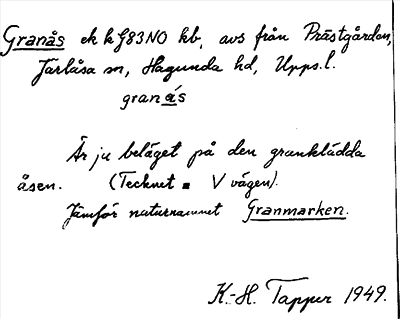 Granås ek k 783NO kb, avs från Prästgården,
Järlåsa sn, Hagunda hd, Upps.l.
granás
Är ju beläget på den granklädda
åsen. (Tecknet ▪ V vägen).
Jämför naturnamnet Granmarken.
K.-H. Tapper 1949.